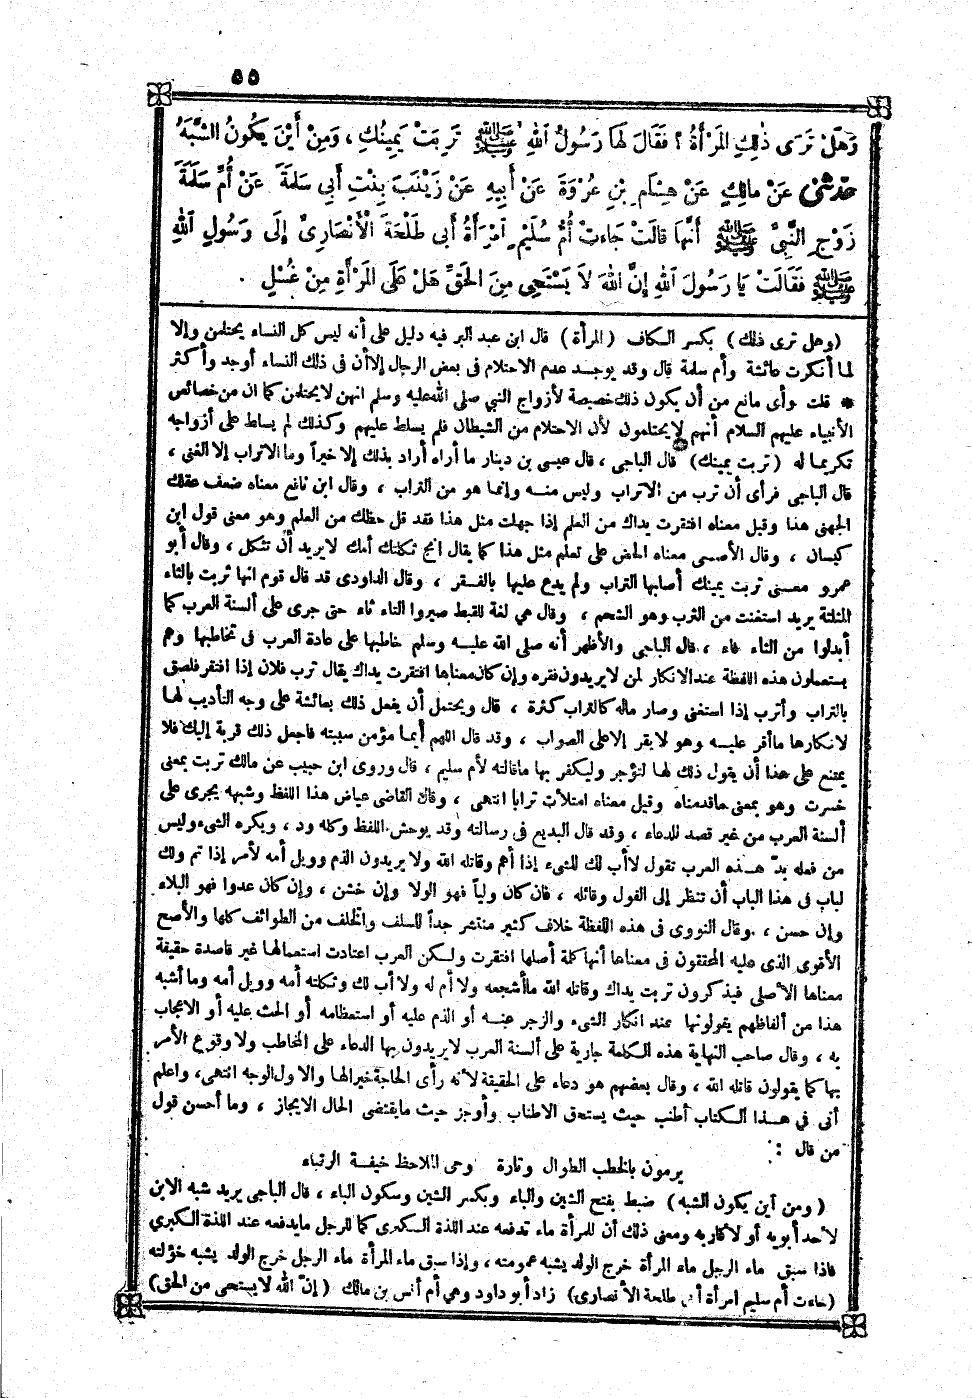 ٥٥
وَهَلْ تَرَى ذَلِكِ المَرْأَةُ ؟ فَقَالَ لَهَا رَسُولُ اللهِ ﷺ تَرِبَتْ يَمِينُكِ ، وَمِنْ أَيْنَ يَكُونُ الشَّبَهُ
حدثنى عَنْ مالِكٍ عَنْ هِشَامِ بْنِ عُرْوَةَ عَنْ أَبِيهِ عَنْ زَيْنَبَ بِنْتِ أَبِي سَلَمَةَ عَنْ أُمِّ سَلَمَةَ
زَوْجِ النَّبِيِّ ﷺ أَنَّهَا قالَتْ جَاءتْ أُمُّ سُلَيْمٍ امْرَأَةُ أَبِى طَلْحَةَ الْأَنْصَارِىِّ إِلَى رَسُولِ اللهِ
ﷺ فَقَالَتْ يَا رَسُولَ اللهِ إِنَّ اللهَ لاَ يَسْتَحْيِى مِنَ الحَقِّ هَلْ عَلَى المَرْأَةِ مِنْ غُسْلٍ .
(وهل ترى ذلك) بكسر الكاف (المرأة) قال ابن عبد البر فيه دليل على أنه ليس كل النساء يحتلمن وإلا
لما أنكرت عائشة وأم سلمة قال وقد يوجد عدم الاحتلام فى بعض الرجال إلا أن فى ذلك النساء أوجد وأكثر
* قلت وأى مانع من أن يكون ذلك خصيصة لأزواج النبي صلى الله عليه وسلم انهن لا يحتلمن كما ان من خصائص
الأنبياء عليهم السلام أنهم لا يحتلمون لأن الاحتلام من الشيطان فلم يسلط عليهم وكذلك لم يساط على أزواجه
تكريما له (تربت يمينك) قال الباجى ، قال عيسى بن دينار ما أراه أراد بذلك إلا خيراً وما الاتراب إلا الغنى ،
قال الباجى فرأى أن ترب من الاتراب وليس منه وإنما هو من التراب ، وقال ابن نافع معناه ضعف عقلك
الجهنى هذا وقيل معناه افتقرت يداك من العلم إذا جهلت مثل هذا فقد قل حظك من العلم وهو معنى قول ابن
كيسان ، وقال الأصمى معناه الحض على تعلم مثل هذا كما يقال انج ثكلتك أمك لا يريد أن تثكل ، وقال أبو
عمرو معنى تربت يمينك أصابها التراب ولم يدع عليها بالفقر ، وقال الداودى قد قال قوم انها ثربت بالثاء
المثلثة يريد استغنت من الثرب وهو الشحم ، وقال هي لغة للقبط صيروا التاء ثاء حتى جرى على ألسنة العرب كما
أبدلوا من الثاء فاء ، قال الباجى والأظهر أنه صلى الله عليه وسلم خاطبها على عادة العرب فى تخاطبها وهم
يستعملون هذه اللفظة عند الانكار لمن لا يريدون فقره وإن كان معناها افتقرت يداك يقال ترب فلان إذا افتقر فلصق
بالتراب وأترب إذا استغنى وصار ماله كالتراب كثرة ، قال ويحتمل أن يفعل ذلك بعائشة على وجه التأديب لها
لانكارها ما أقر عليه وهو لا يقر إلا على الصواب ، وقد قال اللهم أيما مؤمن سببته فاجعل ذلك قربة إليك فلا
يمتنع على هذا أن يقول ذلك لها لتؤجر وليكفر بها ما قالته لأم سليم ، قال وروى ابن حبيب عن مالك تربت بمعنى
خسرت وهو بمعنى ما قدمناه وقيل معناه امتلأت ترابا انتهى ، وقال القاضى عياض هذا اللفظ وشبهه يجرى على
ألسنة العرب من غير قصد للدعاء ، وقد قال البديع فى رسالته وقد يوحش اللفظ وكله ود ، ويكره الشىء وليس
من فعله بد هذه العرب تقول لا أب لك للشىء إذا أهم وقاتله الله ولا يريدون الذم وويل أمه لأمر إذا تم ولك
لباب فى هذا الباب أن تنظر إلى القول وقائله ، فان كان ولياً فهو الولا وإن خشن ، وإن كان عدوا فهو البلاء
وإن حسن ، وقال النووى فى هذه اللفظة خلاف كثير منتشر جداً للسلف والخلف من الطوائف كلها والأصح
الأقوى الذى عليه المحققون فى معناها أنها كلمة أصلها افتقرت ولكن العرب اعتادت استعمالها غير قاصدة حقيقة
معناها الأصلى فيذكرون تربت يداك وقاتله الله ما أشجعه ولا أم له ولا أب لك وثكلته أمه وويل أمه وما أشبه
هذا من ألفاظهم يقولونها عند انكار الشىء والزجر عنه أو الذم عليه أو استعظامه أو الحث عليه أو الاعجاب
به ، وقال صاحب النهاية هذه الكلمة جارية على ألسنة العرب لا يريدون بها الدعاء على المخاطب ولا وقوع الأمر
بها كما يقولون قاتله الله ، وقال بعضهم هو دعاء على الحقيقة لأنه رأى الحاجة خيرا لها والاول الوجه انتهى، واعلم
أنى في هذا الكتاب أطنب حيث يستحق الاطناب وأوجز حيث ما يقتضى الحال الايجاز ، وما أحسن قول
من قال :
يرمون بالخطب الطوال وتارة وحى الملاحظ خيفة الرقباء
(ومن أين يكون الشبه) ضبط بفتح الشين والباء وبكسر الشين وسكون الباء ، قال الباجى يريد شبه الابن
لأحد أبويه أو لأقاربه ومعنى ذلك أن للمرأة ماء تدفعه عند اللذة الكبرى كما للرجل ما يدفعه عند اللذة الكبري
فاذا سبق ماء الرجل ماء المرأة خرج الولد يشبه عمومته ، وإذا سبق ماء المرأة ماء الرجل خرج الولد يشبه خؤلته
(جاءت أم سليم امرأة أبى طلحة الأنصارى) زاد أبو داود وهي أم أنس بن مالك (إن الله لا يستحى من الحق)